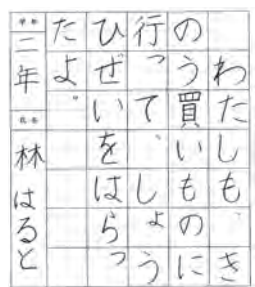 わたしも、き
のう買いものに
行って、しょう
ひぜいをはらっ
たよ。
二年
林はると